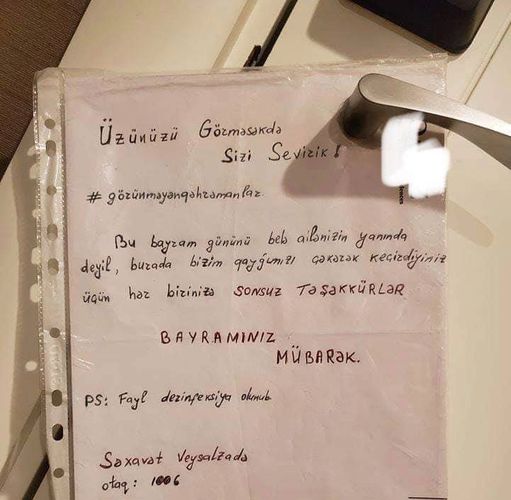 Üzünüzü Görməsəkdə
Sizi Sevirik!
#görünməyənqəhrəmanlar.
Bu bayram gününü belə ailənizin yanında
deyil, burada bizim qayğımızı çəkərək keçirdiyiniz
üçün hər birinizə SONSUZ TƏŞƏKKÜRLƏR
BAYRAMINIZ
MÜBARƏK.
PS: Fayl dezinfeksiya olunub
Səxavət Veysəlzadə
otaq: 1006